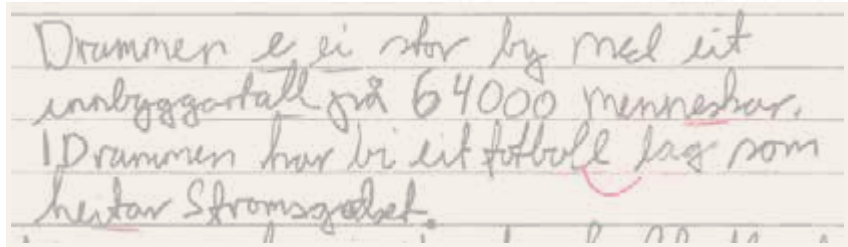 Drammen e ei stor by med eit
innbyggartall på 64000 menneskar.
I Drammen har vi eit fotboll lag som
heitar Stromsgodset.